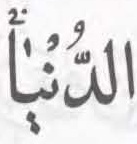 الدُّنْيٰا